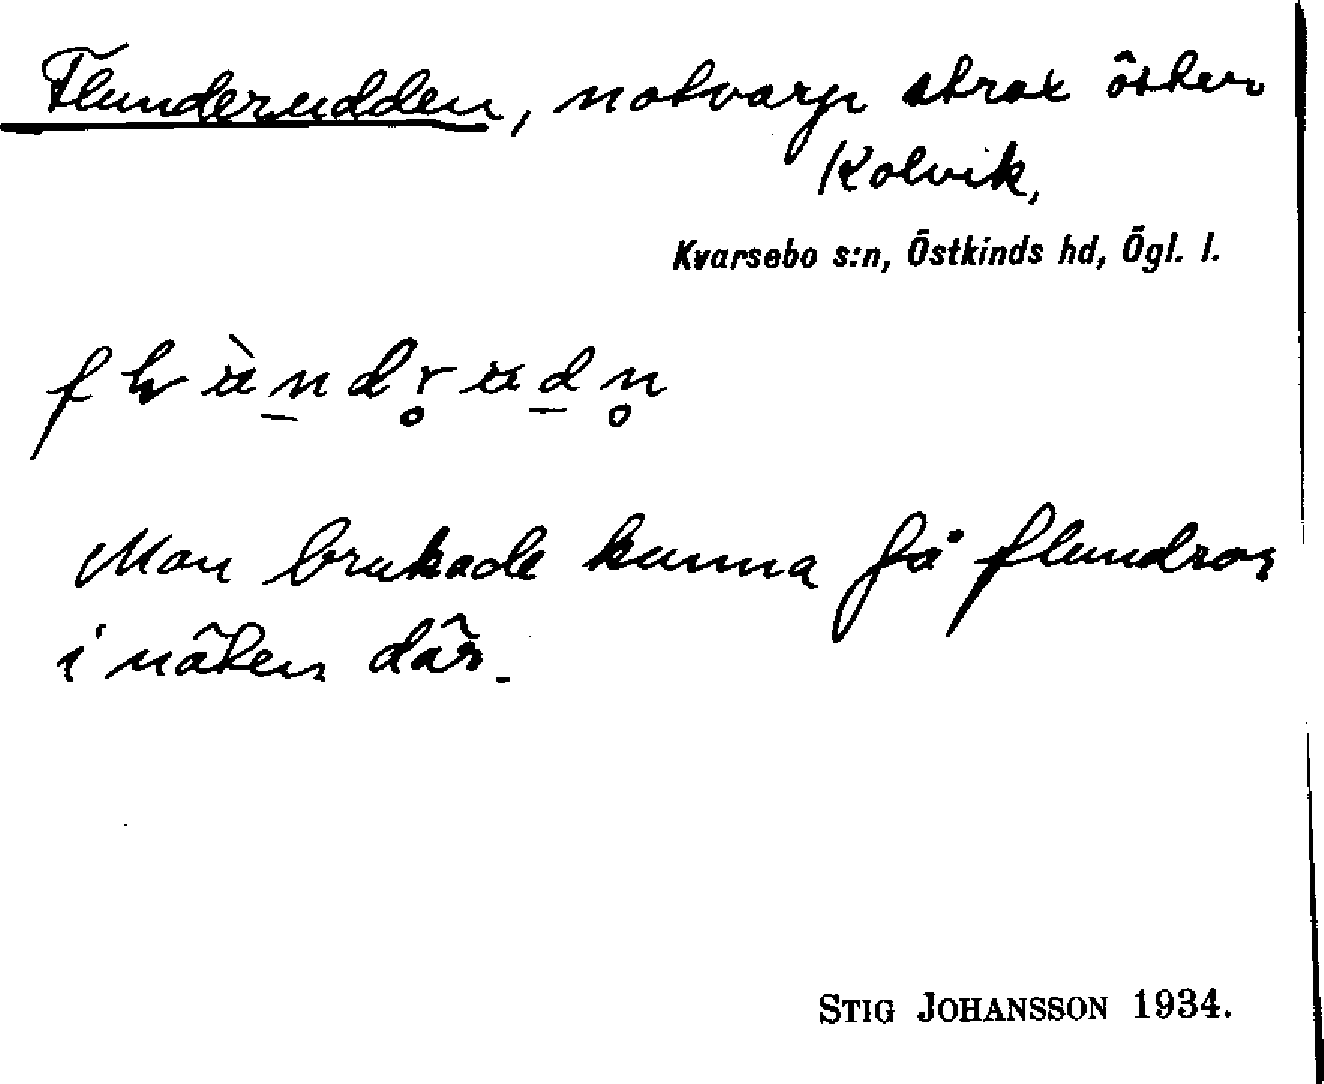 Flunderudden, notvarp strax öster
Kolvik,
Kvarsebo s:n, Östkinds hd, Ögl. l.
Man brukade kunna få flundror
i näten där.
STIG JOHANSSON 1934.